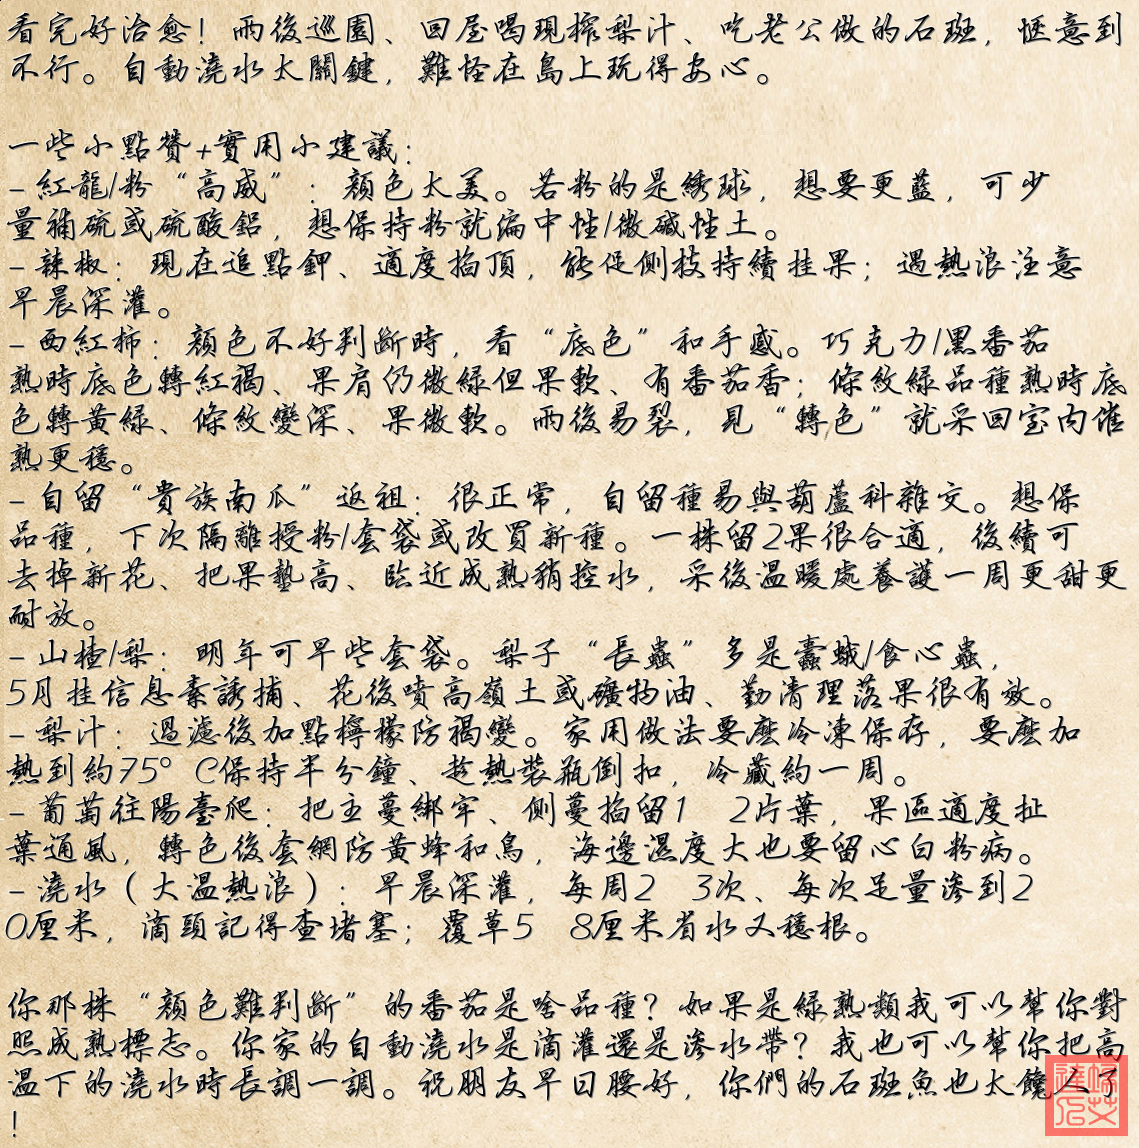 看完好治愈！雨後巡園、回屋喝現榨梨汁、吃老公做的石斑，愜意到
不行。自動澆水太關鍵，難怪在島上玩得安心。
一些小點贊+實用小建議：
- 紅龍/粉“高威”：顏色太美。若粉的是綉球，想要更藍，可少
量補硫或硫酸鋁，想保持粉就偏中性/微碱性土。
- 辣椒：現在追點鉀、適度掐頂，能促側枝持續挂果；遇熱浪注意
早晨深灌。
- 西紅柿：顏色不好判斷時，看“底色”和手感。巧克力/黑番茄
熟時底色轉紅褐、果肩仍微綠但果軟、有番茄香；條紋綠品種熟時底
色轉黃綠、條紋變深、果微軟。雨後易裂，見“轉色”就采回室内催
熟更穩。
- 自留“貴族南瓜”返祖：很正常，自留種易與葫蘆科雜交。想保
品種，下次隔離授粉/套袋或改買新種。一株留2果很合適，後續可
去掉新花、把果墊高、臨近成熟稍控水，采後溫暖處養護一周更甜更
耐放。
- 山楂/梨：明年可早些套袋。梨子“長蟲”多是蠹蛾/食心蟲，
5月挂信息素誘捕、花後噴高嶺土或礦物油、勤清理落果很有效。
- 梨汁：過濾後加點檸檬防褐變。家用做法要麽冷凍保存，要麽加
熱到約75° C保持半分鐘、趁熱裝瓶倒扣，冷藏約一周。
- 葡萄往陽臺爬：把主蔓綁牢、側蔓掐留1 2片葉，果區適度扯
葉通風，轉色後套網防黃蜂和鳥，海邊濕度大也要留心白粉病。
- 澆水（大溫熱浪）：早晨深灌，每周2 3次、每次足量滲到2
0厘米，滴頭記得查堵塞；覆草5 8厘米省水又穩根。
你那株“顏色難判斷”的番茄是啥品種？如果是綠熟類我可以幫你對
照成熟標志。你家的自動澆水是滴灌還是滲水帶？我也可以幫你把高
溫下的澆水時長調一調。祝朋友早日腰好，你們的石斑魚也太饞人了
！